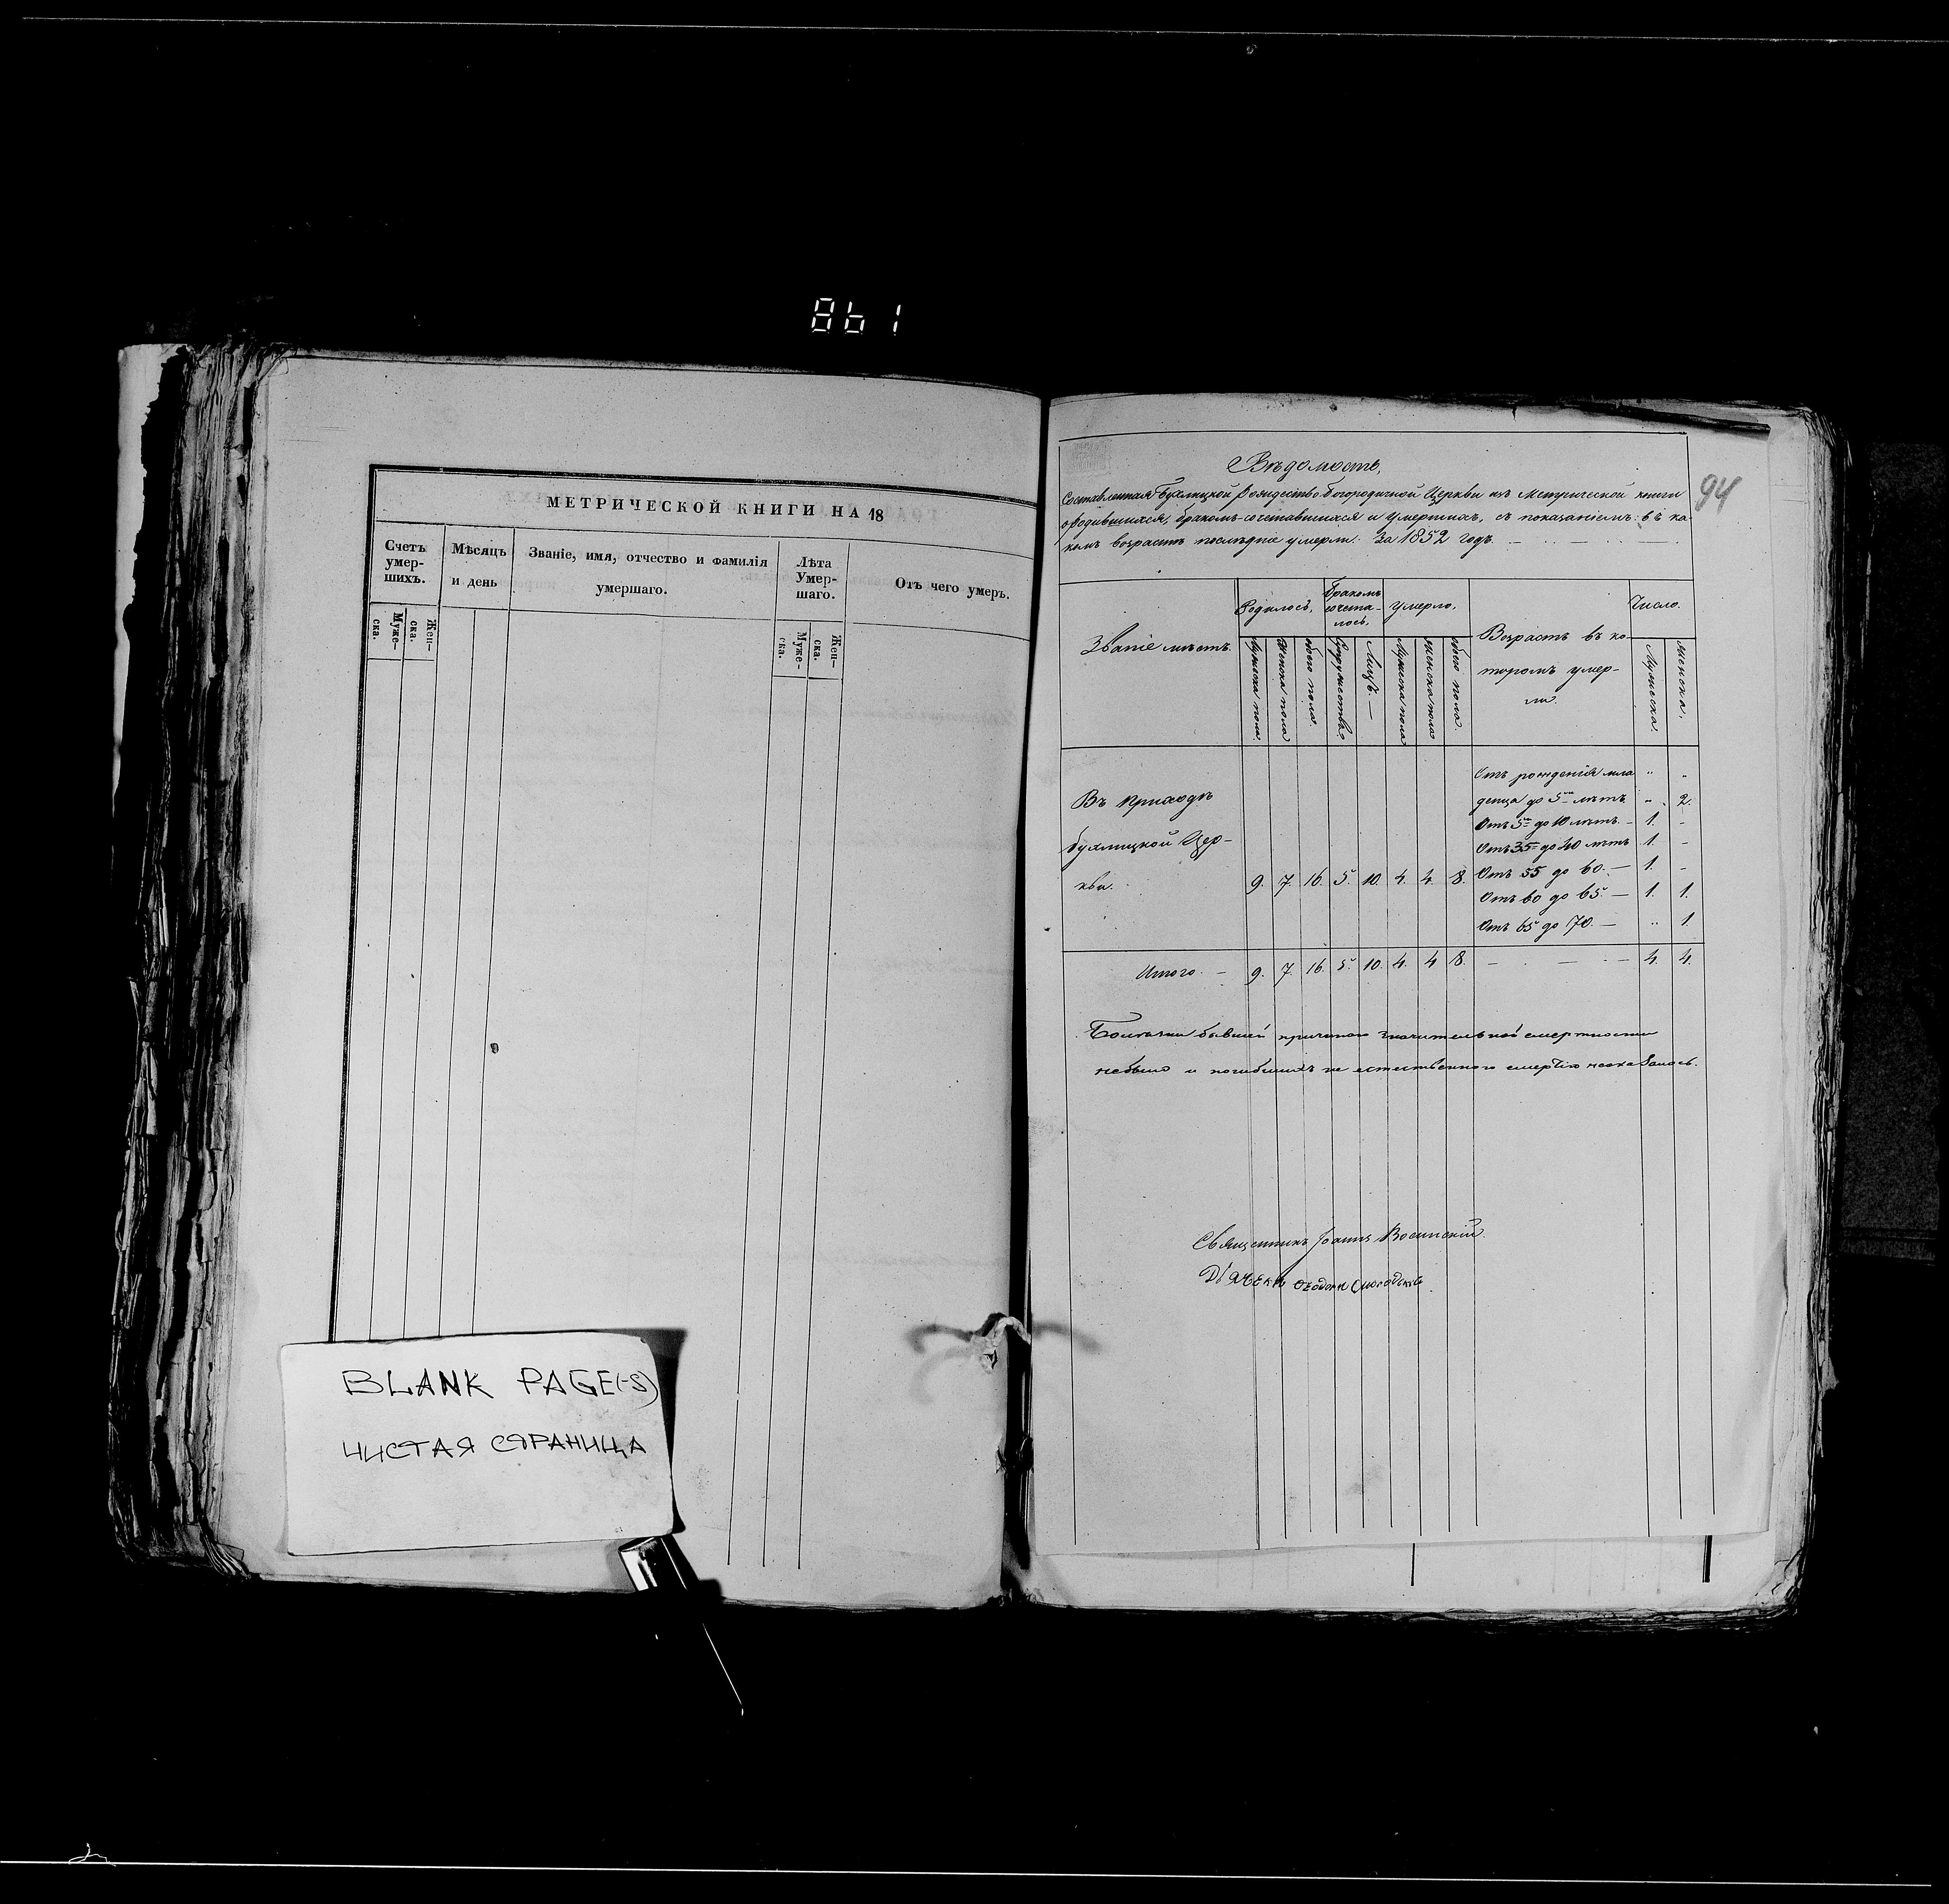 861
МЕТРИЧЕСКОЙ КНИГИ НА 18
Счетъ умер-шихъ.
Мѣсяцъ и день
Званіе, имя, отчество и фамилія умершаго.
Лѣта Умер-шаго.
Отъ чего умеръ.
Муже-ска.
Жен-ска.
Муже-ска.
Жен-ска.
BLANK PAGE(-S)
ЧИСТАЯ СТРАНИЦА
94
Вѣдомость,
Составленная Бухлицкой Рождество-Богородичной Церкви изъ Метрической книги
о родившихся, бракомъ-сочетавшихся и умершихъ, съ показаніемъ: въ ка-
комъ возрастѣ послѣдніе умерли. За 1852 годъ.
Званіе мѣстъ.
Родилось,
Бракомъ сочета-лось,
Умерло,
Возрастъ въ ко-торомъ умер-ли.
Число.
Мужеска пола.
Женска пола
обоего пола.
Супружествъ
Лицъ. —
Мужеска пола
женска пола
обоего пола
Мужеска.
женска.
Въ приходѣ
Бухлицкой Цер-
кви. 9. 7. 16. 5. 10. 4. 4. 8.
Отъ рожденія мла- „ „
денца до 5ти лѣтъ „ 2.
Отъ 5ти до 10 лѣтъ. – 1. -
Отъ 35 до 40 лѣтъ 1. -
Отъ 55 до 60. — 1. -
Отъ 60 до 65. — 1. 1.
Отъ 65 до 70. — „ 1
Итого. — 9. 7. 16. 5. 10. 4. 4 8. — — — 4. 4.
Болѣзни бывшей причиною значительной смертности
небыло и погибшихъ не естественною смертію неоказалось.
Священникъ Іоаннъ
Дьячекъ